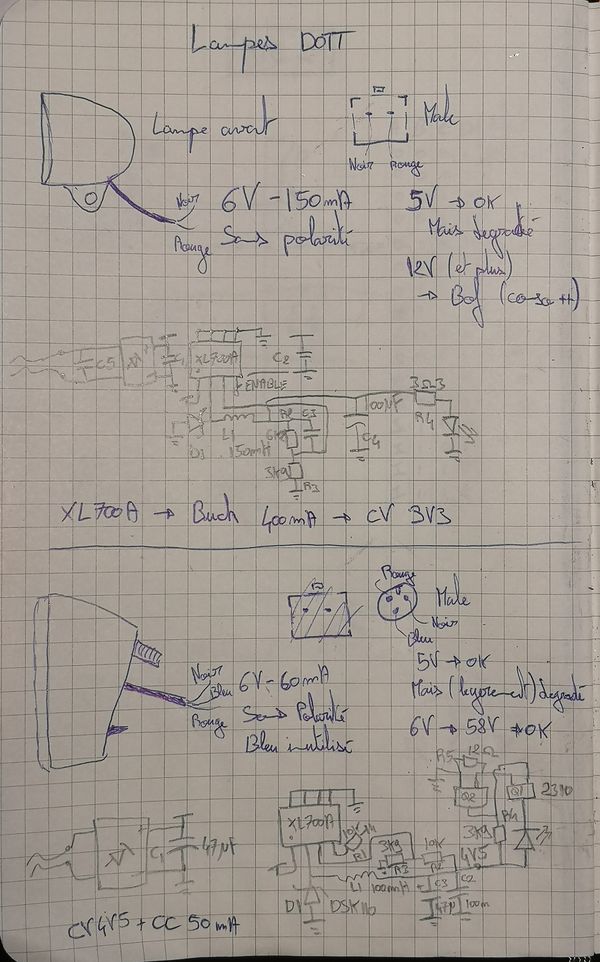 Lampes DOTT
Lampe avant
Male
Noir Rouge
Noir
Rouge
6V - 150mA
Sans polarité
5V → OK
Mais degradé
12V (et plus)
→ Bof (conso ++)
C5
C1
XL700A
C2
ENABLE
D1
L1
150mH
R2
C3
3K9
R3
100µF
C4
3Ω3
R4
XL700A → Buck 400mA → CV 3V3
Rouge
Male
Noir
Bleu
Noir
Bleu
Rouge
6V - 60mA
Sans Polarité
Bleu inutilisé
5V → OK
Mais (legerement) degradé
6V → 58V → OK
C1
47µF
XL700A
R1
3K9
R3
10K
R2
4V5
L1 100mmH
D1
DSK110
C3
C2
47µ
100m
R5
12Ω
Q2
Q1
3K9
R4
CV4V5 + CC 50mA